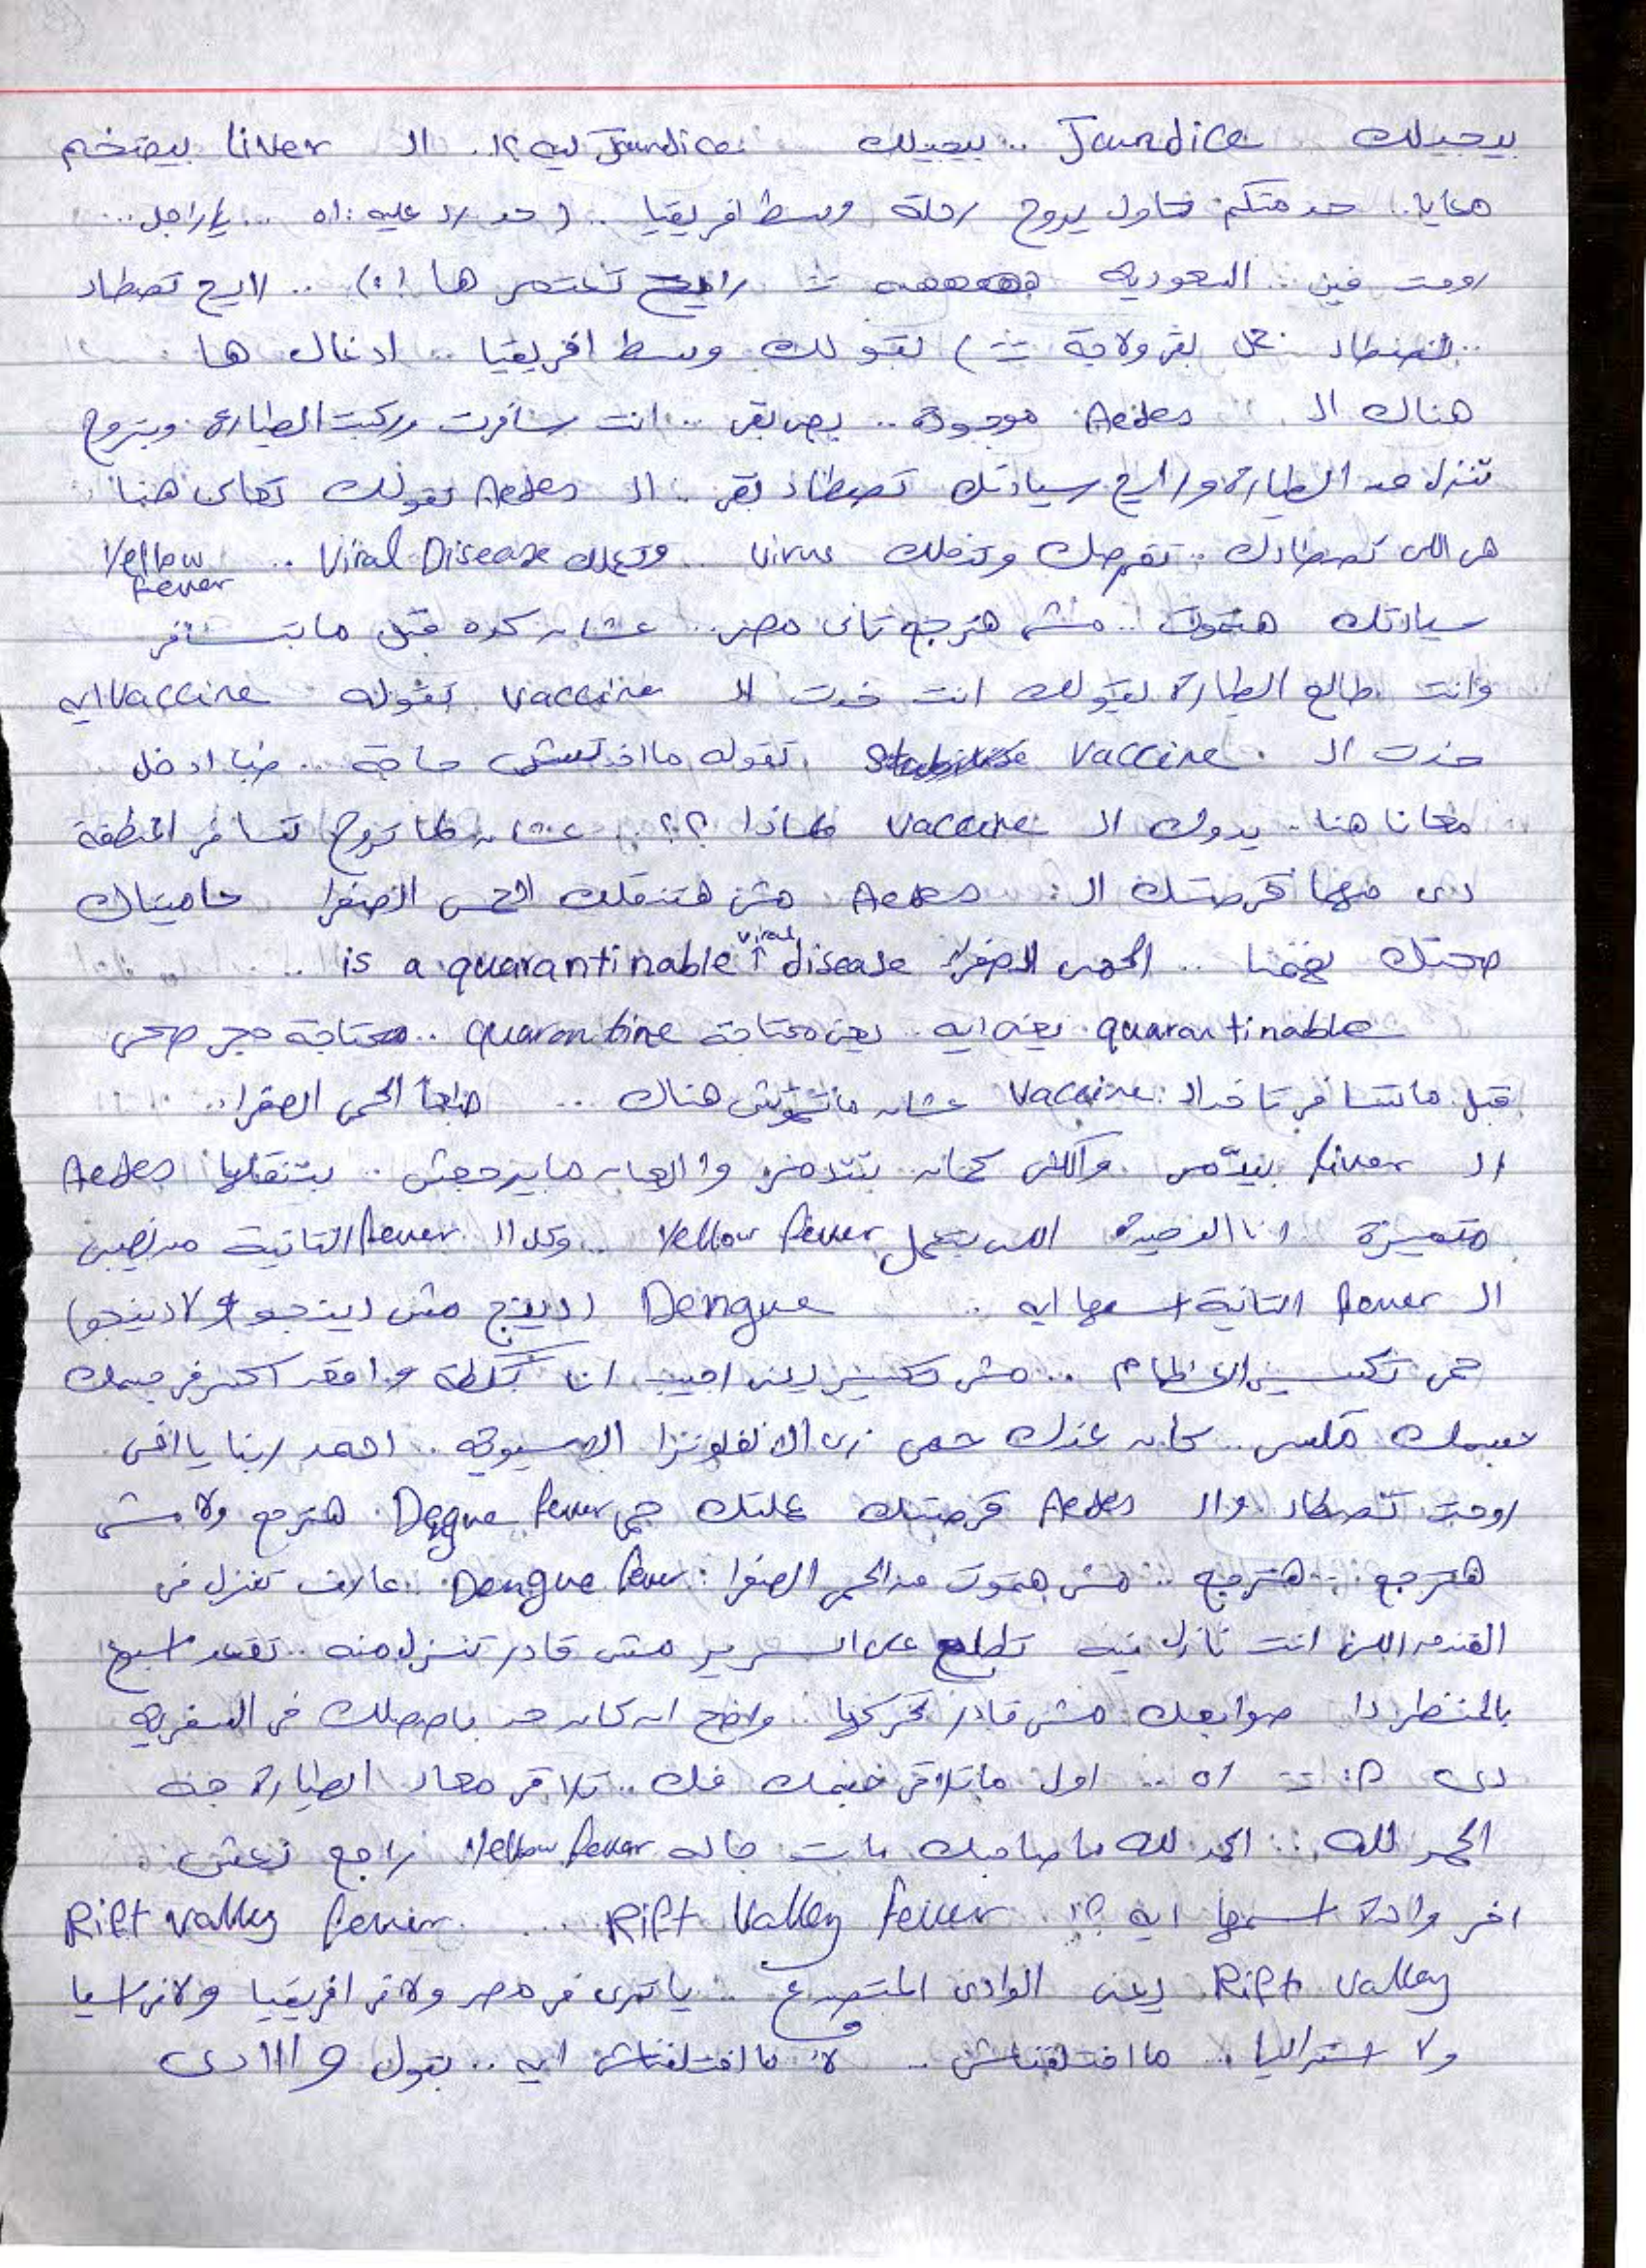 بيجيلك Jaundice .. بيجيلك Jaundice ليه ؟! .. ال Liver بيتضخم
معايا .. حد منكم حاول يروح رحلة وسط افريقيا .. ( حد رد عليه : اه .. ياراجل ..
روحت فين .. السعودية رايح تعتمر ها !؟) .. لا رايح تصطاد
.. تصطاد بقر ولا حاجة ) بقولك وسط افريقيا .. ادغال ها
هناك ال Aedes موجودة .. بص بقى .. انت سافرت وركبت الطيارة وبتروح
تنزل من الطيارة ورايح سيادتك تصطاد بقى .. ال Aedes تقولك تعالى هنا
هى اللى تصطادك .. تقرصك وتنقلك virus .. وتعملك Viral Disease .. Yellow fever
سيادتك هتموت .. مش هترجع تانى مصر .. عشان كده قبل ما بتسافر
وانت طالع الطيارة يقولك انت خدت ال vaccine تقوله vaccine ايه
خدت ال vaccine تقوله ما اخدتش حاجة .. طب ادخل
معانا هنا .. يدوك ال vaccine لماذا ؟؟ .. عشان لما تروح تسافر المنطقة
دى مهما قرصتك ال Aedes مش هتنقلك الحمى الصفرا حاميناك
صحتك تهمنا .. الحمى الصفراء is a quarantinable viral disease ..
quarantinable يعنى ايه .. يعنى محتاجة quarantine .. محتاجة حجر صحى
قبل ماتتسافر تاخد ال Vaccine عشان ماتموتش هناك .. طبعا الحمى الصفرا ..
ال liver بيدمر .. والكلى كمان بتتدمر والعيان مابيرجعش .. بتنقلها Aedes
متميزة .. انا الوحيدة اللى بتعمل Yellow fever .. وكل ال fever التانية من نصيبى
ال fever التانية اسمها ايه .. Dengue (دينج مش دينجو ولا دينجو)
حمى تكسير العظام .. مش تكسير يعنى اجيب انا بلطة واقعد اكسر فى جسمك
جسمك مكسر .. كان عندك حمى زى الانفلونزا الاسيوية .. احمد ربنا يا اخى
روحت تصطاد وال Aedes قرصتك عملتلك حمى Degue fever هترجع ولا مش
هترجع .. هترجع .. مش هتموت من الحمى الصفرا .. Dengue fever عارف تنزل فى
الفندق اللى انت نازل فيه تطلع على السرير مش قادر تنزل منه .. تقعد اسبوع
بالمنظر دا صوابعك مش قادر تحركها .. واضح ان كان حد باصصلك فى السفرية
دى .. اه .. اول ما تلاقى جسمك فك .. تلاقى معاد الطيارة جه
الحمد لله .. الحمد لله ما صاحبك مات جاله Yellow fever راجع
اخر واحدة اسمها ايه ؟! Rift Valley fever .. Rift valley fever
Rift valley يعنى الوادى المتصدع .. ياترى فى مصر ولا فى افريقيا ولا فى اسيا
ولا استراليا .. ما اختلفناش .. لأ ما اختلفناش ايه .. بتقول وااادى